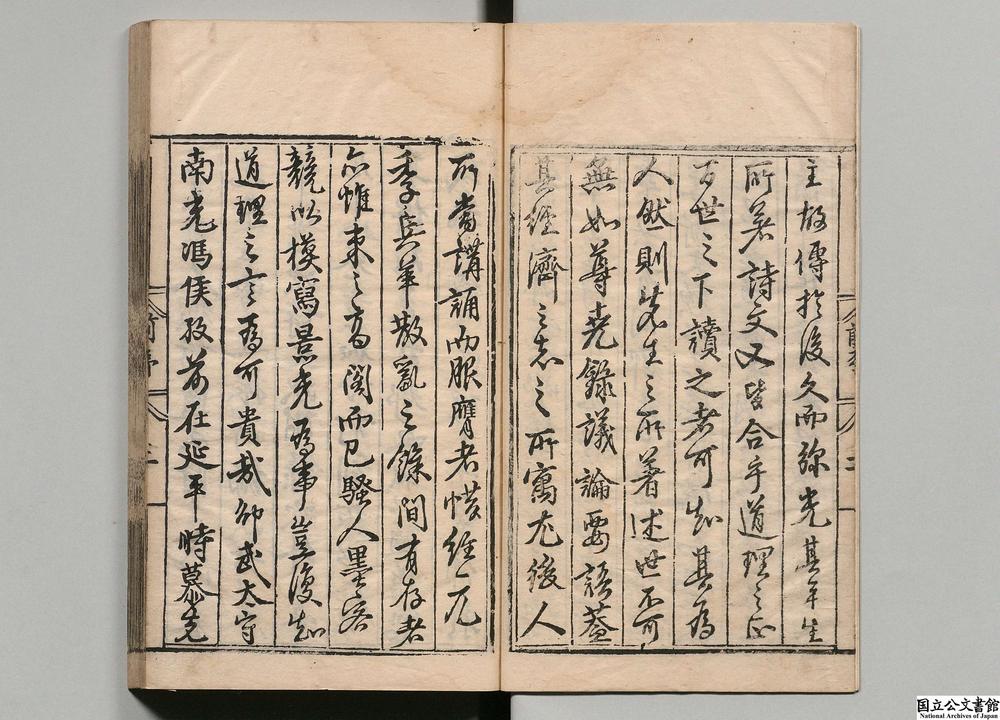 主故傳於後久而彌光其平生
所著詩文又皆合乎道理之正
百世之下讀之者可知其為
人然則先生之所著述世不可
無如尊堯錄議論要語蓋
其經濟之志之所寓尤後人
所當講誦而服膺者惜經元
季兵革散亂之餘間有存者
亦惟束之高閣而已騷人墨客
競以模寫景光為事豈復知
道理之言為可貴哉邵武太守
南充馮侯孜前在延平時慕先
前序
二
前序
三
国立公文書館
National Archives of Japan